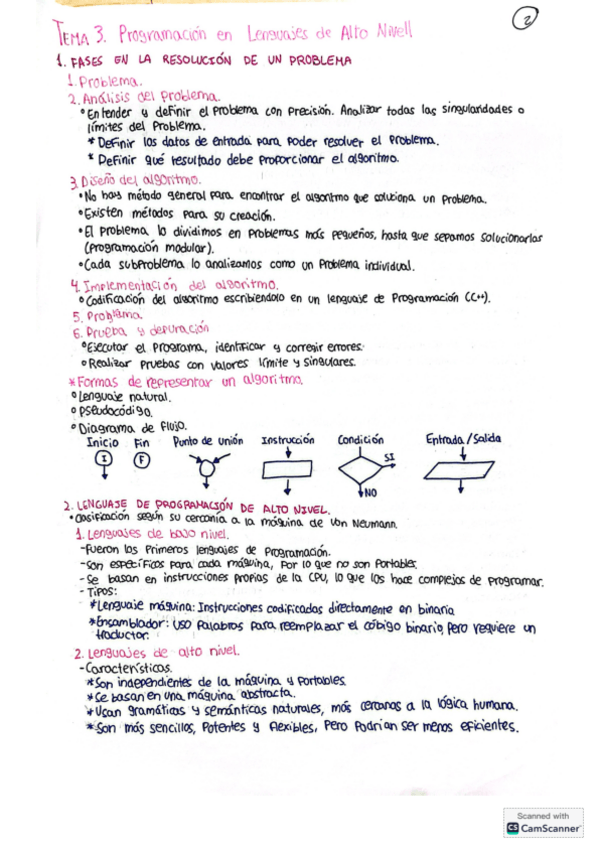 2
TEMA 3. Programación en Lenguajes de Alto Nivell
1. FASES EN LA RESOLUCIÓN DE UN PROBLEMA
1. Problema.
2. Análisis del problema.
°Entender y definir el problema con precisión. Analizar todas las singularidades o
límites del problema.
* Definir los datos de entrada para poder resolver el problema.
* Definir qué resultado debe proporcionar el algoritmo.
3. Diseño del algoritmo.
•No hay método general para encontrar el algoritmo que soluciona un problema.
•Existen métodos para su creación.
•El problema lo dividimos en problemas más pequeños, hasta que sepamos solucionarlas
(Programación modular).
•Cada subproblema lo analizamos como un problema individual.
4. Implementación del algoritmo.
°Codificación del algoritmo escribiendolo en un lenguaje de Programación (C++).
5. Problema
6. Prueba y depuración
°Ejecutar el programa, identificar y corregir errores.
°Realizar pruebas con valores límite y singulares.
*Formas de representar un algoritmo.
°Lenguaje natural.
°Pseudocódigo.
°Diagrama de flujo.
Inicio Fin Punto de unión Instrucción Condición Entrada / Salida
I F SI
NO
2. LENGUAJE DE PROGRAMACIÓN DE ALTO NIVEL.
•Clasificación según su cercanía a la máquina de Von Neumann.
1. Lenguajes de bajo nivel.
-Fueron los primeros lenguajes de Programación.
-Son específicos para cada máquina, por lo que no son portables.
-Se basan en instrucciones propias de la CPU, lo que los hace complejos de programar.
-Tipos:
*Lenguaje máquina: Instrucciones codificadas directamente en binario
*Ensamblador: Uso palabras para reemplazar el código binario, pero requiere un
traductor.
2. Lenguajes de alto nivel.
-Características.
*Son independientes de la máquina y portables.
*Se basan en una máquina abstracta.
*Usan gramáticas y semánticas naturales, más cercanas a la lógica humana.
*Son más sencillos, potentes y flexibles, pero podrían ser menos eficientes.
Scanned with
CS CamScanner